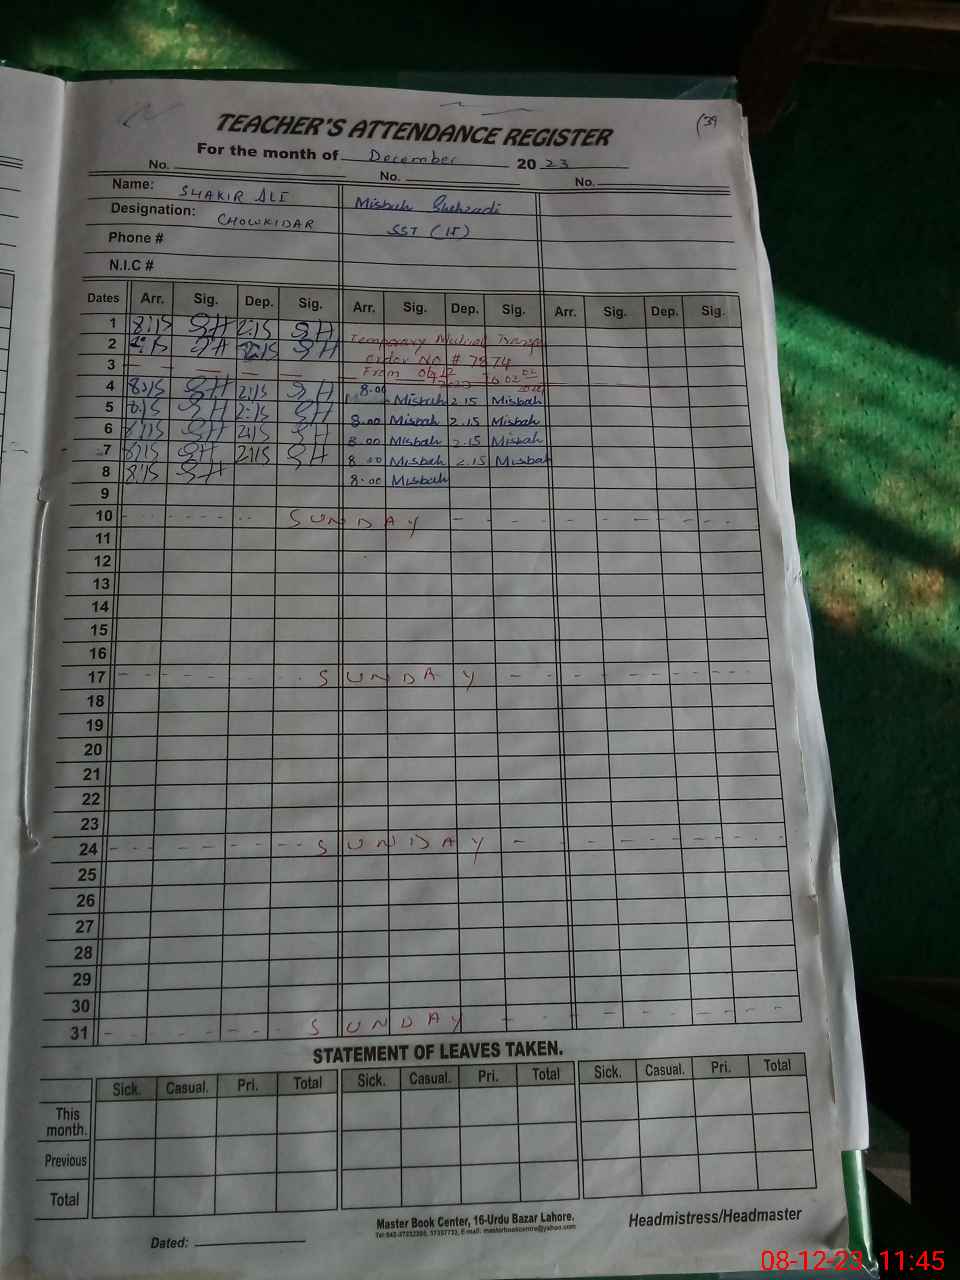 (39
TEACHER'S ATTENDANCE REGISTER
For the month of December 2023
No. No. No.
Name: SHAKIR ALI Misbah Shehzadi
Designation: CHOWKIDAR SST (IT)
Phone #
N.I.C #
Dates Arr. Sig. Dep. Sig. Arr. Sig. Dep. Sig. Arr. Sig. Dep. Sig.
1 8:15 SH 2:15 SH
2 SH SH Temporary Mutual
3 order No # 7874
From
4 8:15 SH 2:15 SH 8.00 Misbah 2.15 Misbah
5 8:15 SH 2:15 SH 8.00 Misbah 2.15 Misbah
6 8:15 SH 2:15 SH 8.00 Misbah 2.15 Misbah
7 8:15 SH 2:15 SH 8.00 Misbah 2.15 Misbah
8 8:15 SH 8.00 Misbah
9
10 SUNDAY
11
12
13
14
15
16
17 SUNDAY
18
19
20
21
22
23
24 SUNDAY
25
26
27
28
29
30
31 SUNDAY
STATEMENT OF LEAVES TAKEN.
Sick. Casual. Pri. Total Sick. Casual. Pri. Total Sick. Casual. Pri. Total
This month.
Previous
Total
Master Book Center, 16-Urdu Bazar Lahore.
Headmistress/Headmaster
Dated:
08-12-23 11:45